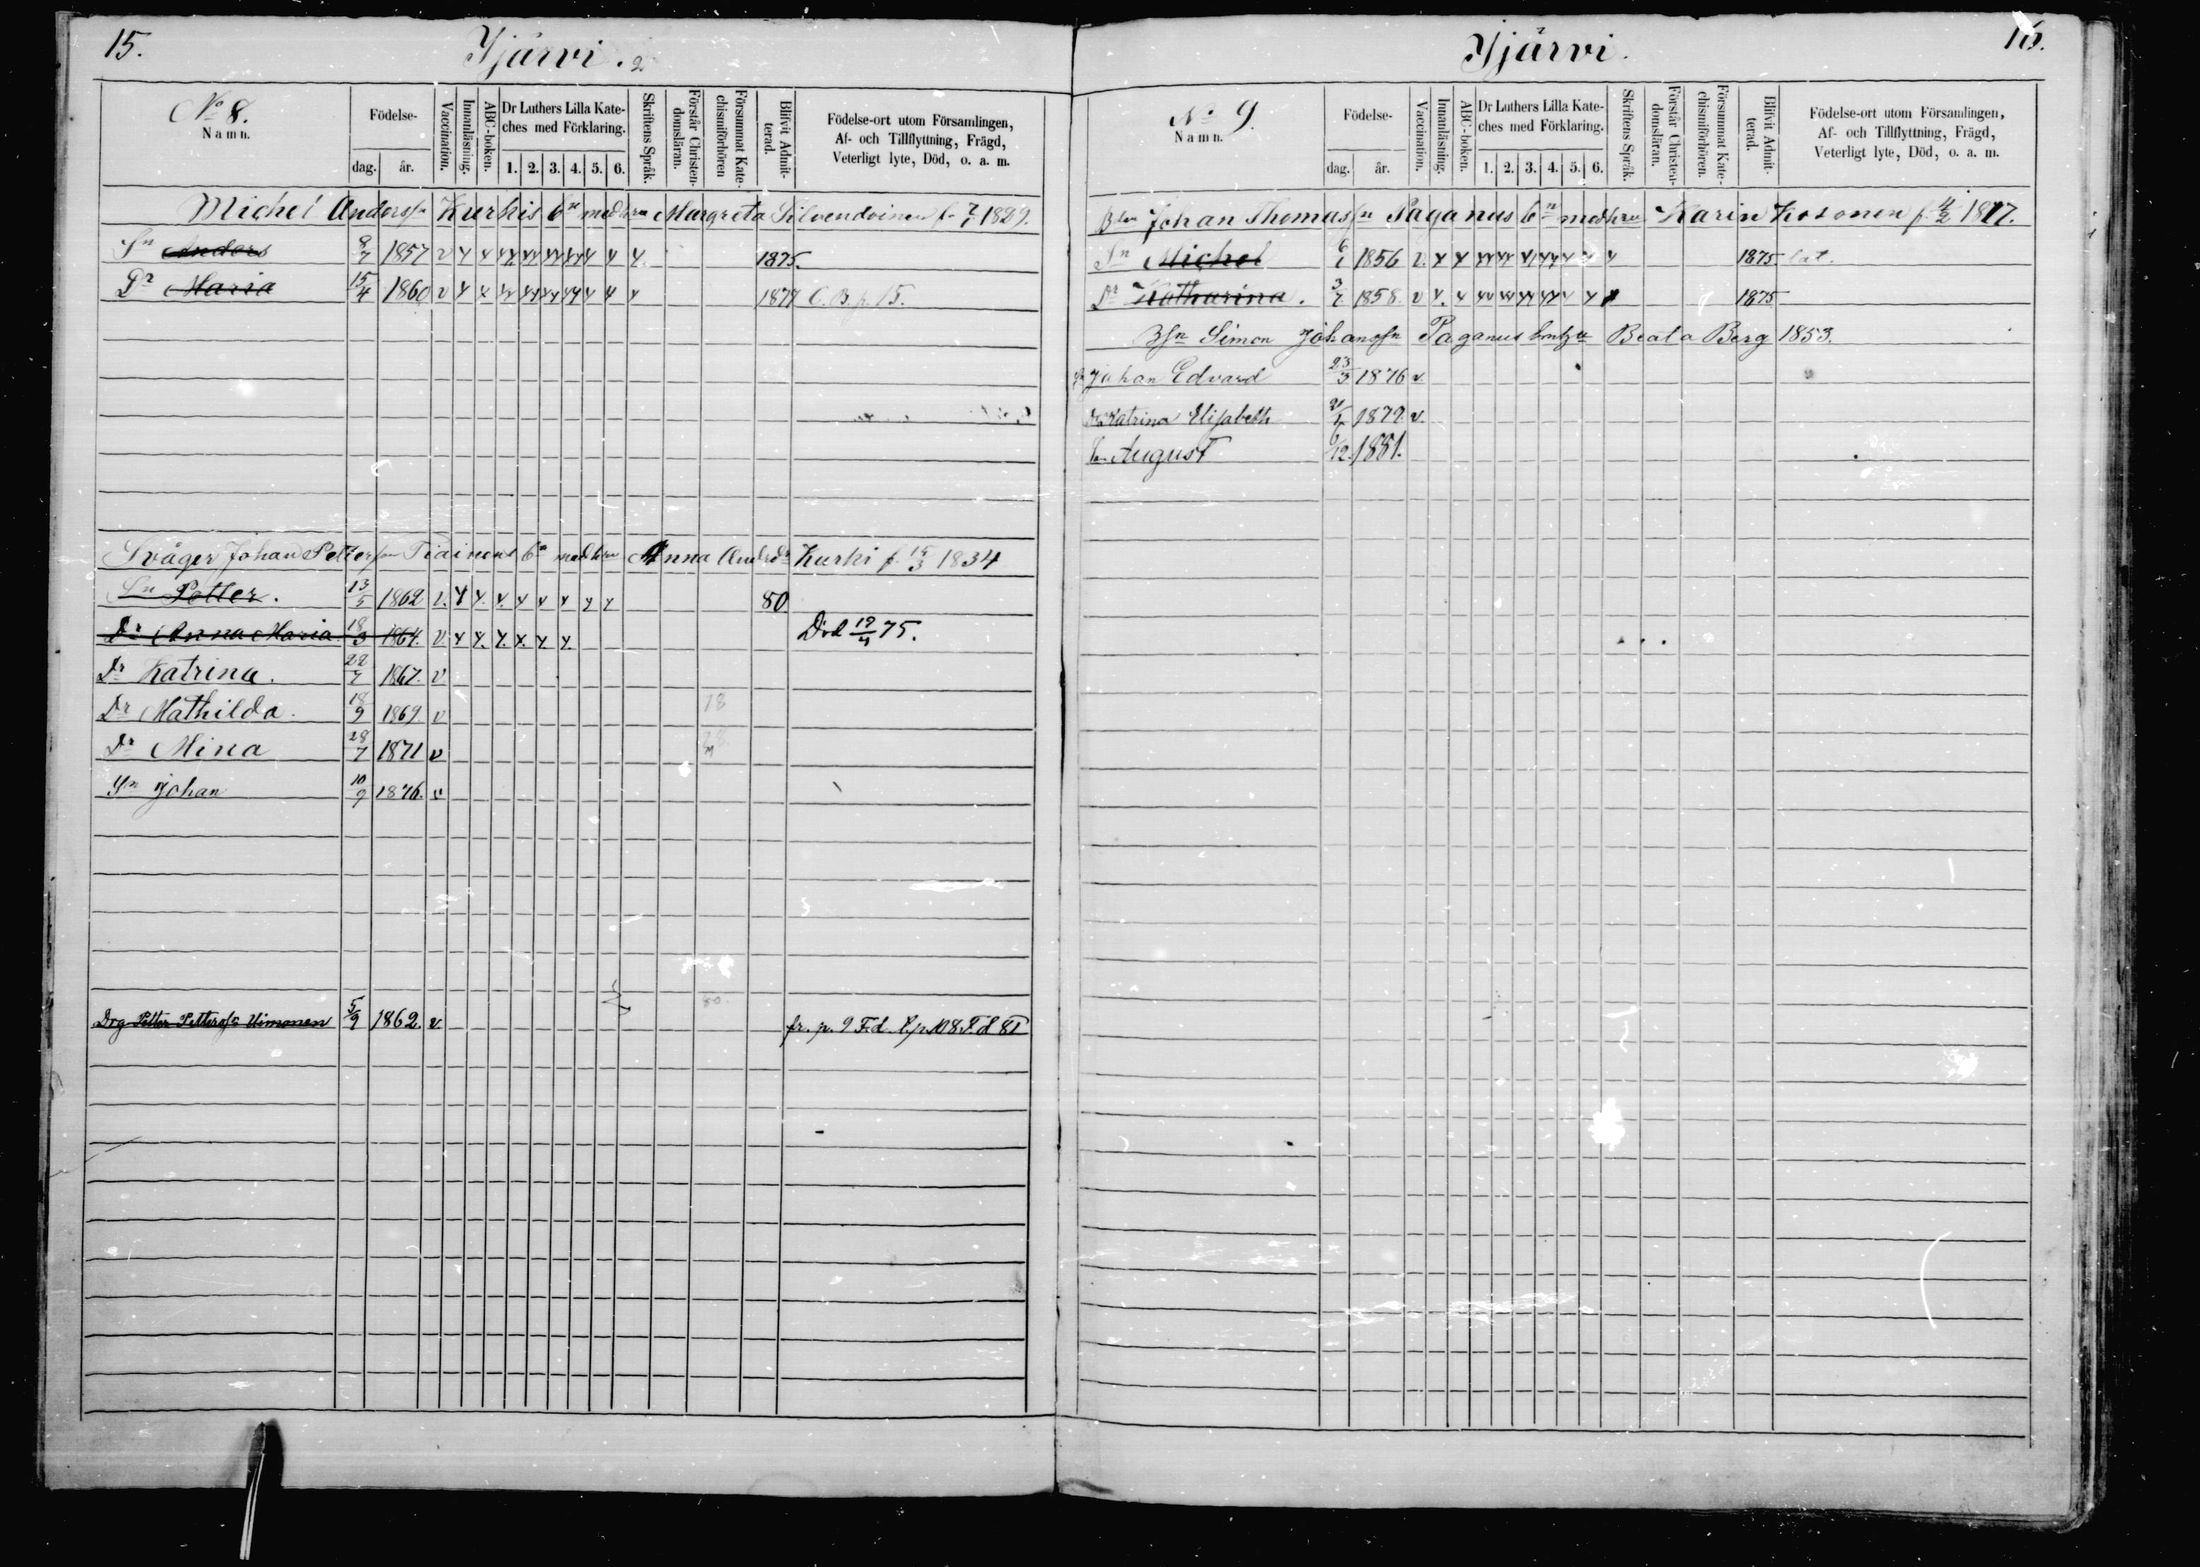 15.
Yjärvi. 2
No 8.
Namn.
Födelse-
dag.
år.
Vaccination.
Innanläsning.
ABC-boken.
Dr Luthers Lilla Kate-
ches med Förklaring.
1. 2. 3. 4. 5. 6.
Skriftens Språk.
Förstår Christen-
domsläran.
Försummat Kate-
chismiförhören
Blifvit Admit-
terad.
Födelse-ort utom Församlingen,
Af- och Tillflyttning, Frägd,
Veterligt lyte, Död, o. a. m.
Michel Anderssn Kurkis bn med hru Margreta Silvendoinen f. 7/7 1829.
Sn Anders 8/7 1857 v 1875.
Dr Maria 15/4 1860 v 1877 C. B. p. 15.
Svåger Johan Petterssn Tiainens bn med hru Anna Andrsdr Kurki f. 3 1834
Sn Petter. 13/5 1862 v. 80
Dr Anna Maria 18/3 1864. v Död 19/4 75.
Dr Katrina. 22/7 1867. v
Dr Mathilda. 18/9 1869. v 78
Dr Mina 28/7 1871 v
Sn Johan 10/9 1876. v
80.
Drg Petter Petterss Uimonen 5/9 1862. v. fr. p. 9 F.d. l.p. 108. F.d 81
16.
Yjärvi.
No 9.
Namn.
Födelse-
dag.
år.
Vaccination.
Innanläsning.
ABC-boken.
Dr Luthers Lilla Kate-
ches med Förklaring.
1. 2. 3. 4. 5. 6.
Skriftens Språk.
Förstår Christen-
domsläran.
Försummat Kate-
chismiförhören.
Blifvit Admit-
terad.
Födelse-ort utom Församlingen,
Af- och Tillflyttning, Frägd,
Veterligt lyte, Död, o. a. m.
Johan Thomassn Paganus bn med hru Karin Kosonen f. 4/2 1817.
Sn Michel 6/1 1856 v. 1875
Dr Katharina. 3/7 1858. v 1875
Simon Johanssn Paganus Beata Berg 1853.
Sn Johan Edvard 23/3 1876 v.
Dr Katrina Elisabeth 1879. v.
Sn August 6/12. 1881.